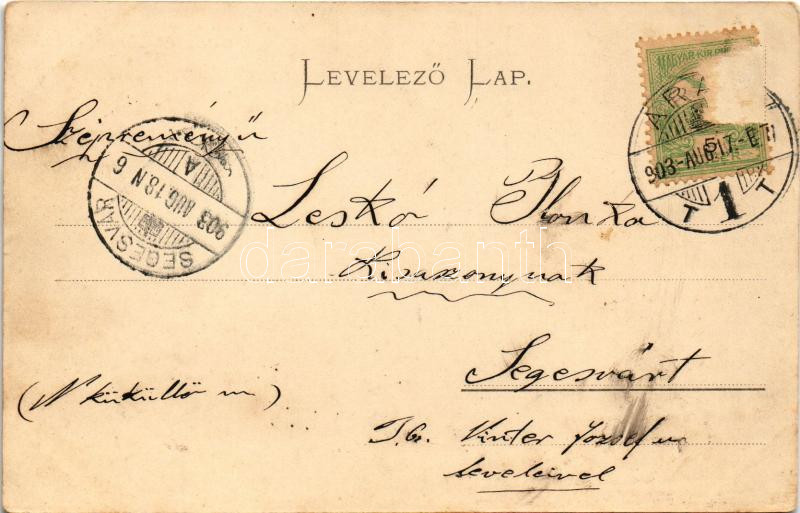 LEVELEZŐ LAP.
MAGYAR·KIR·
5
ARAD
903-AUG.17-
T 1 T
Szépreményű
SEGESVÁR
903 AUG.18.N 6
A
Leskó Ilonka
Kisaszonynak
Segesvárt
(N küküllő m)
I.G. Vinter József u.
leveleivel
darabanth